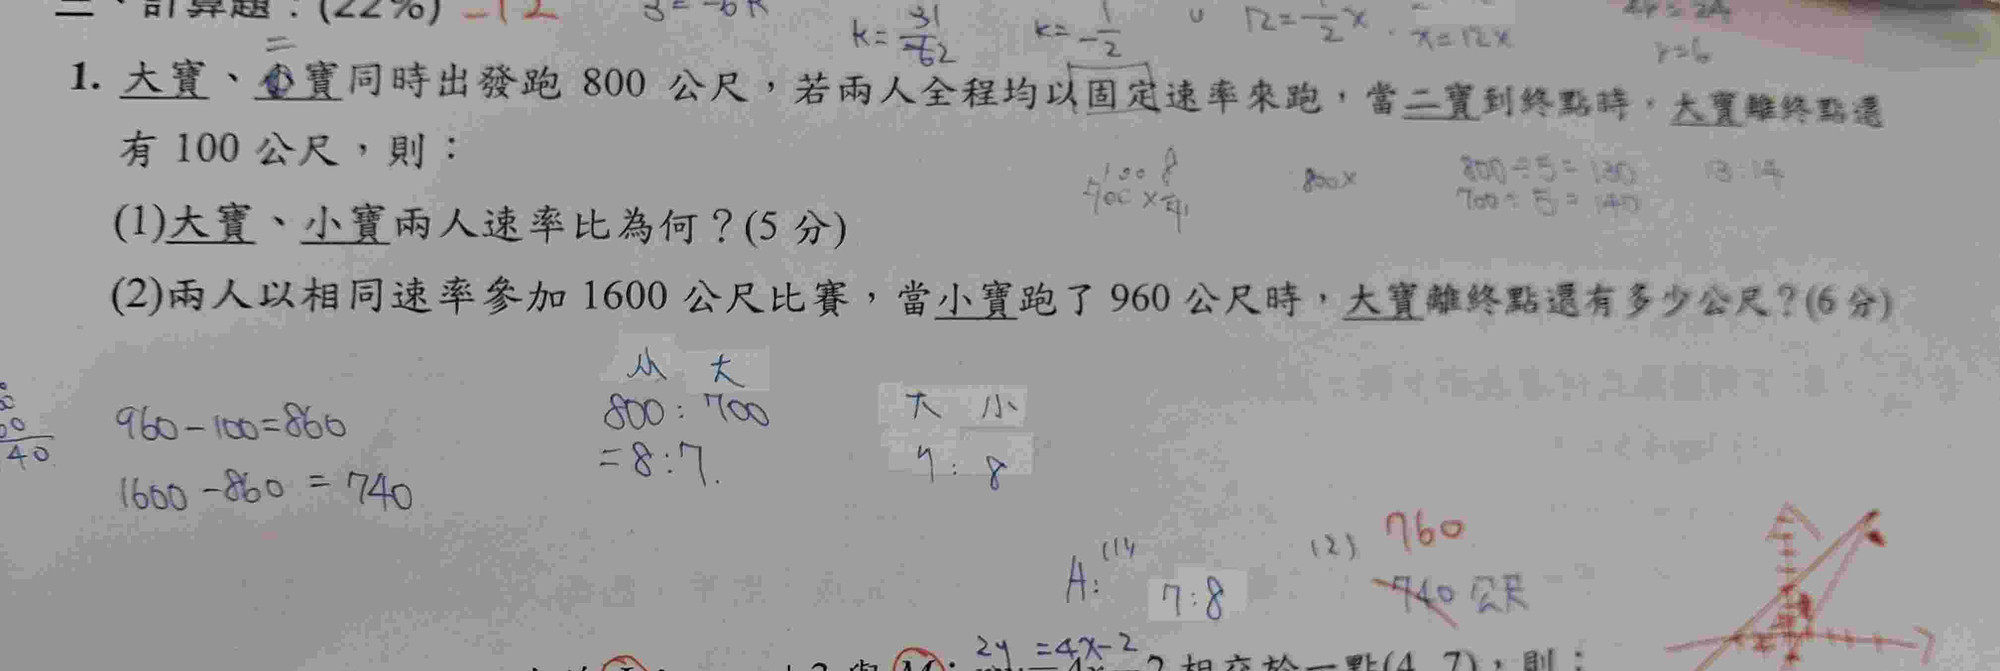 二、計算題：(22%) -12
3=-6k
k=31/-62
k=-1/2
12=-1/2x
x=12x
2r=24
r=6
二
1. 大寶、小寶同時出發跑 800 公尺，若兩人全程均以固定速率來跑，當二寶到終點時，大寶離終點還
有 100 公尺，則：
800x
800÷5=130
700÷5=140
13:14
(1)大寶、小寶兩人速率比為何？(5 分)
(2)兩人以相同速率參加 1600 公尺比賽，當小寶跑了 960 公尺時，大寶離終點還有多少公尺？(6 分)
小 大
800:700
=8:7.
大 小
7:8
40
960-100=860
1600-860=740
A: (1) 7:8
(2) 760
740 公尺
2y=4x-2
相交於一點(4, 7)，則：